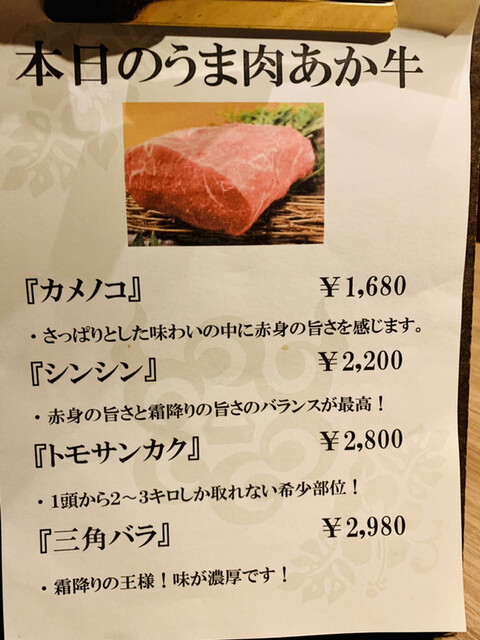 本日のうま肉あか牛
『カメノコ』 ￥1,680
・さっぱりとした味わいの中に赤身の旨さを感じます。
『シンシン』 ￥2,200
・赤身の旨さと霜降りの旨さのバランスが最高！
『トモサンカク』 ￥2,800
・1頭から2～3キロしか取れない希少部位！
『三角バラ』 ￥2,980
・霜降りの王様！味が濃厚です！